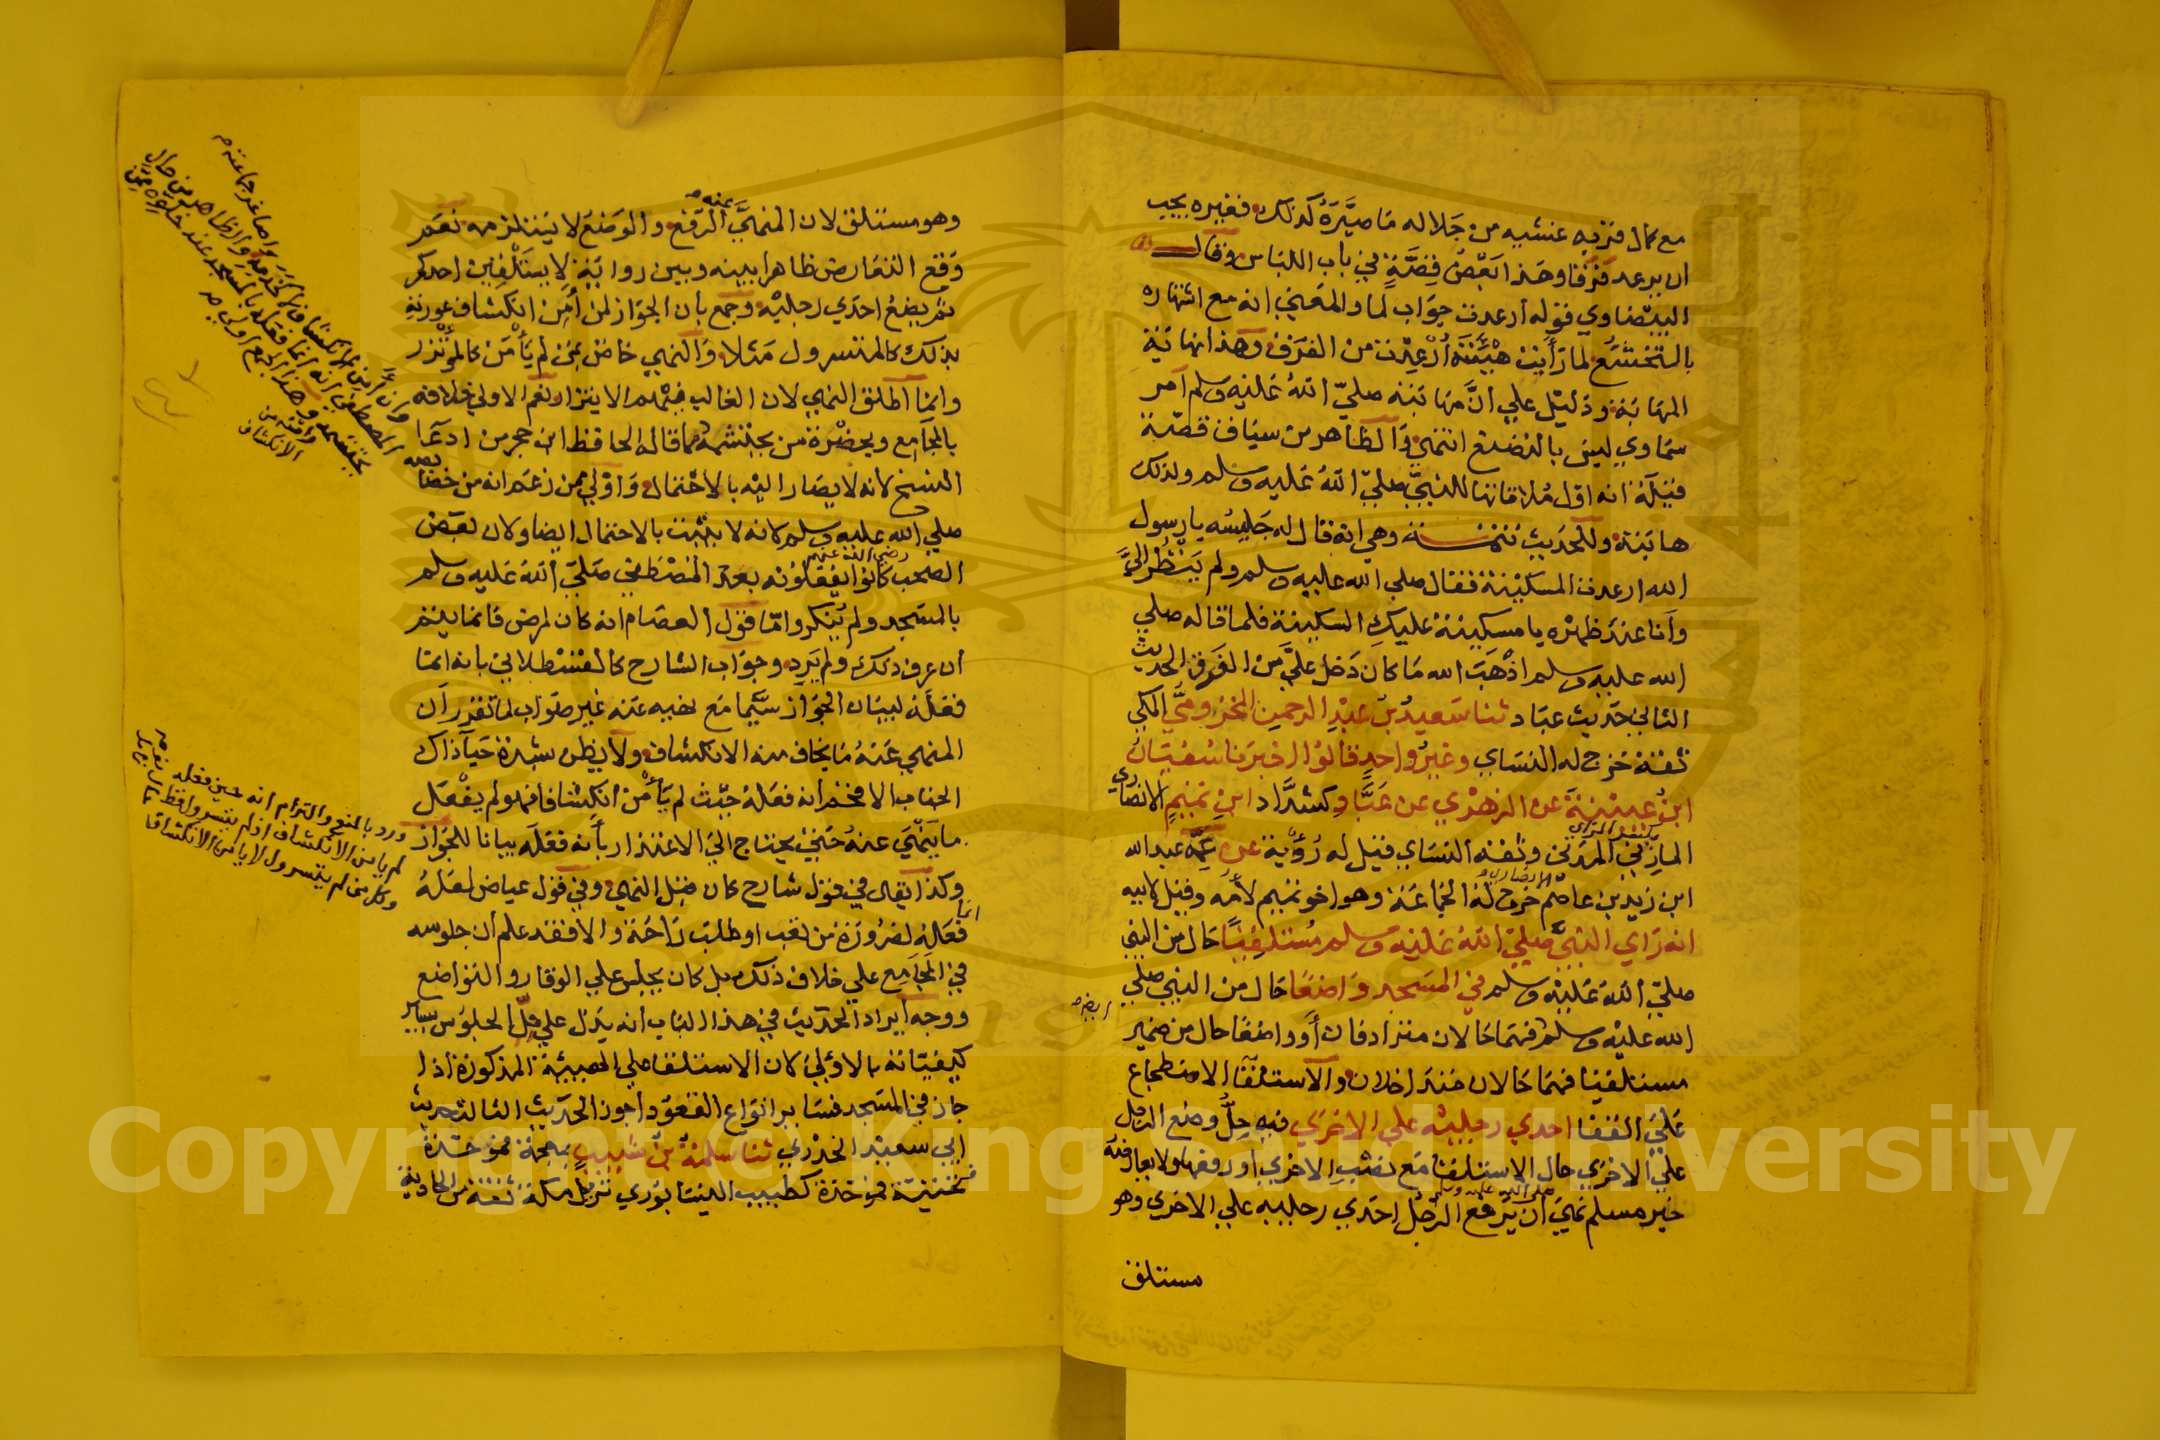 مع كمال قربه عنشيه من جلاله ما صيره كذلك فغيره يجب
ان يرعد فرقا وهذا بعض قصة في باب اللباس وقال
البيضاوي قوله ارعدت جواب لما والمعني انه مع اشتهاره
بالتخشع لما رأيت هيئته أرعدت من الفرق وهذا نهاية
المهابة ودليل علي ان مهابته صلي الله عليه وسلم امر
سماوي ليس بالتصنع انتهي والظاهر من سياق قصة
قيلة انه اول ملاقاتها للنبي صلي الله عليه وسلم ولذلك
هابته وللحديث تتمة وهي انه قال له جليسه يا رسول
الله ارعدت المسكينة فقال صلي الله عليه وسلم ولم ينظر الي
وأنا عند ظهره يا مسكينة عليك السكينة فلما قاله صلي
الله عليه وسلم اذهب الله ما كان دخل علي من الفرق الحديث
الثاني حديث عباد ثنا سعيد بن عبد الرحمن المخزومي المكي
ثقة خرج له النسائي وغير واحد قالوا اخبرنا سفيان
ابن عيينة عن الزهري عن عباد كشداد ابن تميم الانصاري
المازني المدني وثقه النسائي قيل له رؤية عن عمه عبد الله
ابن زيد بن عاصم خرج له الجماعة وهو اخو تميم لأمه وقيل لابيه
انه راي النبي صلي الله عليه وسلم مستلقيا حال من النبي
صلي الله عليه وسلم في المسجد واضعا حال من النبي صلي
ايضا
الله عليه وسلم فهما حالان مترادفان أو واضعا حال من ضمير
مستلقيا فهما حالان متداخلان والاستلقا الاضطجاع
علي القفا احدي رجليه علي الاخري فيه حل وضع الرجل
علي الاخري حال الاستلقا مع نصب الاخري أو رفعها ولا يعارضه
خبر مسلم نهي صلي الله عليه وسلم أن يرفع الرجل احدي رجليه علي الاخري وهو
مستلق
وهو مستلق لان المنهي عنه الرفع والوضع لا يستلزمه نعم
وقع التعارض ظاهرا بينه وبين رواية لا يستلقين احدكم
ثم يضع احدي رجليه وجمع بان الجواز لمن أمن انكشاف عورته
بذلك كالمتسرول مثلا والنهي خاص بمن لم يأمن كالمؤتزر
وانما اطلق النهي لان الغالب فيهم الاتزار نعم الاولي خلافه
بالجامع وبحضرة من يحتشمه مما قاله الحافظ ابن حجر من ادعا
النسخ لانه لا يصار اليه بالاحتمال واولي ممن زعم انه من خصائصه
صلي الله عليه وسلم لانه لا يثبت بالاحتمال ايضا ولان بعض
الصحب رضي الله عنهم كانوا يفعلونه بعد المصطفي صلي الله عليه وسلم
بالمسجد ولم ينكروا اما قول العصام انه كان لمرض فانما يتم
ان عرف ذلك ولم يرد وجواب الشارح كالقسطلاني بانه انما
فعله لبيان الجواز سيما مع نهيه عنه غير صواب لما تقرر أن
المنهي عنه ما يخاف منه الانكشاف ولا يظن بشدة حيا ذاك
الجناب الافخم انه فعله حيث لم يأمن انكشافا فهو لم يفعل
ما ينهي عنه حتي يحتاج الي الاعتذار بأنه فعله بيانا للجواز
وكذا يقال في قول شارح كان قبل النهي وفي قول عياض لعله
انما
فعله لضرورة من تعب او طلب راحة والا فقد علم أن جلوسه
في المجامع علي خلاف ذلك بل كان يجلس علي الوقار والتواضع
ووجه ايراد الحديث في هذا الباب انه يدل علي حل الجلوس بسائر
كيفياته بالاولي لان الاستلقا علي الهيئة المذكورة اذا
جاز في المسجد فسائر انواع القعود اجوز الحديث الثالث حديث
ابي سعيد الخدري ثنا سلمة بن شبيب بمعجمة فموحدة
فتحتية فموحدة كطبيب النيسابوري نزيل مكة ثقة من الحادية
ورد بالمنع والتزام انه حين فعله
لم يأمن الانكشاف اذ لم يتسرول فقط
وكل من لم يتسرول لا يأمن الانكشاف